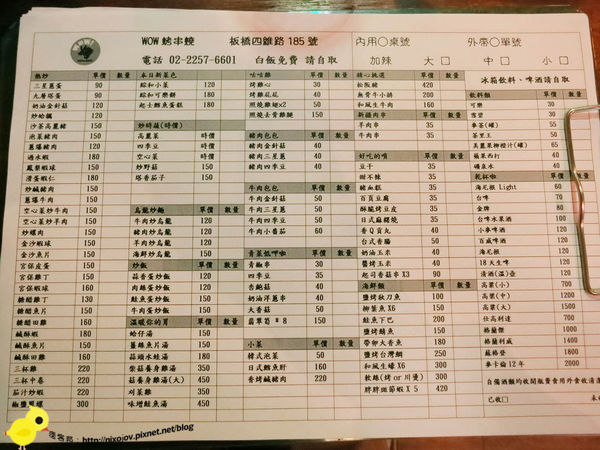 WOW 鱔串饒 板橋四維路185號 內用○桌號 外帶○單號
電話 02-2257-6601 白飯免費 請自取 加辣 大□ 中□ 小□
熱炒 單價 數量
三星蔥蛋 90
九層塔蛋 90
奶油金針菇 120
炒蛤蠣 120
沙茶高麗豬 150
泡菜豬肉 150
蔥爆豬肉 120
過水蝦 180
鳳梨蝦球 150
滑蛋蝦仁 180
炒鹹豬肉 150
蔥爆牛肉 150
空心菜炒牛肉 150
空心菜炒羊肉 150
炒螺肉 150
金沙蝦球 150
金沙魚片 150
宮保皮蛋 150
宮保雞丁 150
糖醋雞丁 130
糖醋魚片 150
糖醋田雞 160
鹹酥蝦 190
鹹酥魚片 150
鹹酥田雞 160
三杯雞 220
三杯中卷 220
茄汁蝦 220
椒鹽鳳螺 300
本日新菜色 單價 數量
綜和小菜 120
綜和可樂餅 180
起士鱈魚蛋糕 180
炒時蔬(時價)
高麗菜 時價
四季豆 時價
空心菜 時價
炒野菇 150
塔香茄子 150
烏龍炒麵 單價 數量
牛肉炒烏龍 120
豬肉炒烏龍 120
羊肉炒烏龍 120
海鮮炒烏龍 150
炒飯 單價 數量
蒜香蛋炒飯 120
肉絲蛋炒飯 120
鮭魚蛋炒飯 120
牛肉蛋炒飯 150
溫暖你的胃 單價 數量
蛤仔湯 150
薑絲魚片湯 150
蒜頭水蛙湯 180
柴菇養身雞湯 350
菇養身雞湯(大) 450
刈菜雞 350
味增鮭魚湯 450
咕咕雞 單價 數量
烤雞心 30
烤雞花花 40
照燒雞翅x2 50
照燒去骨雞腿 150
豬肉包肉 單價 數量
豬肉金針菇 40
豬肉三星蔥 40
豬肉四季豆 40
牛肉包肉 單價 數量
牛肉金針菇 50
牛肉三星蔥 50
牛肉四季豆 50
牛肉小番茄 60
青菜低呷啦 單價 數量
青椒串 30
四季豆 35
杏鮑菇 40
奶油洋蔥串 50
大香菇 50
翡翠筍 * 8 150
小菜 單價 數量
韓式泡菜 50
日式鱈魚肝 160
香烤鹹豬肉 220
精心挑選 單價 數量
松阪豬 420
無骨牛小排 200
和風生牛肉 160
新疆肉串 單價 數量
羊肉串 35
牛肉串 35
好吃的喲 單價 數量
豆干 35
甜不辣 35
豬血糕 35
百頁豆腐 35
酥脆烤豆皮 35
日式麻糬燒 35
香Q貢丸 40
台式香腸 50
奶油玉米 40
醬烤玉米 40
起司香菇串X3 90
海鮮類 單價 數量
鹽烤秋刀魚 100
柳葉魚X6 150
鮭魚下巴 200
鹽烤鯖魚 150
帶卵大香魚 180
鹽烤台灣鯛 250
和風生蠔X6 300
軟絲(烤or川燙) 300
胖胖斑節蝦 X 5 420
冰箱飲料、啤酒請自取
飲料類 單價 數量
可樂 30
雪碧 30
麥香(罐) 55
茶里王 50
美粒果柳橙汁(罐) 65
蘋果西打 40
礦泉水 40
乾杯啦 單價 數量
海尼根 Light 60
台啤 70
金牌 80
台啤水果酒 90
小麥啤酒 120
百威啤酒 120
海尼根 120
18天生啤 120
清酒(溫)壺 120
高粱(小) 700
高粱(中) 1200
高粱(大) 1500
仕高利達 700
格蘭傑 1000
格蘭利威 1400
蘇格登 1800
麥卡倫12年 2000
自備酒類均收開瓶費
已收□
痞客邦：http://nixojov.pixnet.net/blog